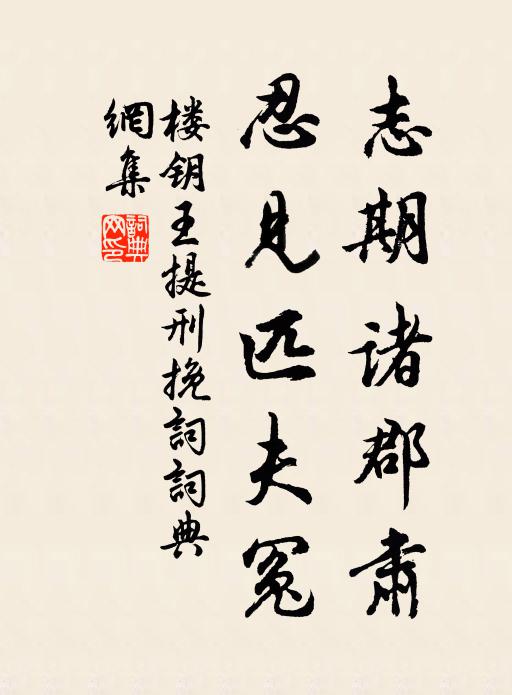 志期诸郡肃
忍见匹夫冤
楼钥王提刑挽詞詞典
網集
詞典
网印